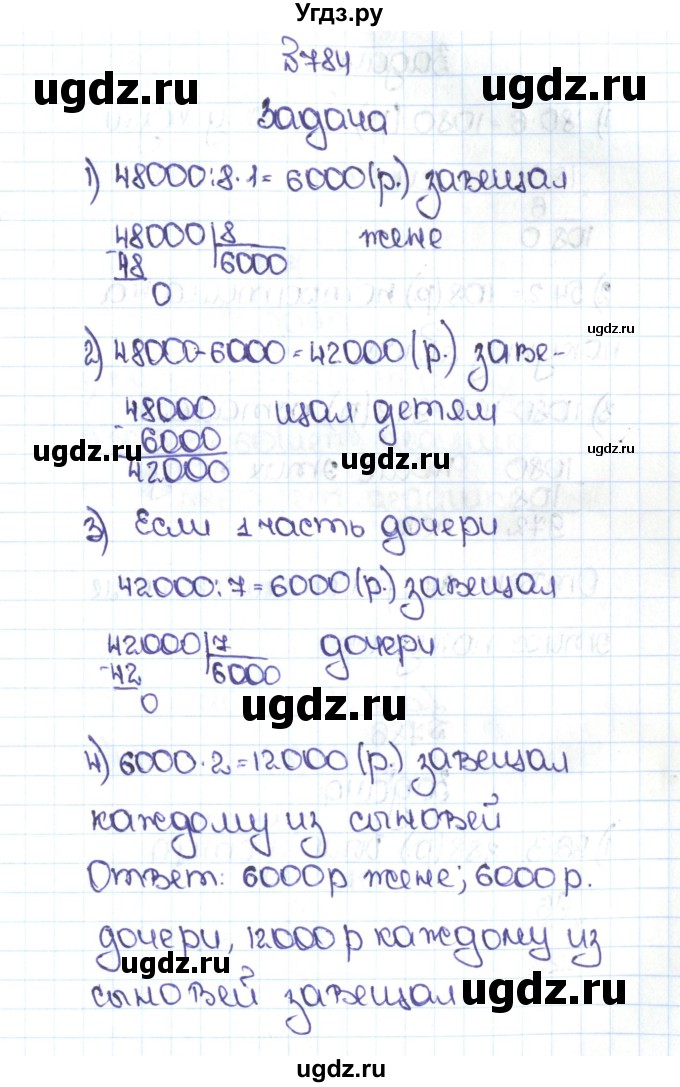 Угдз.ру
№784
ugdz.ru
ugdz.ru
Задача
1) 48000:8·1=6000(р.) завещал
48000 | 8 жене
- 48 6000
0
2) 48000-6000=42000(р.) заве-
ugdz.ru
- 48000 щал детям
6000
42000
ugdz.ru
ugdz.ru
ugdz.ru
3) Если 1 часть дочери
42000:7=6000(р.) завещал
42000 | 7 дочери
- 42 6000
0
ugdz.ru
ugdz.ru
4) 6000·2=12000(р.) завещал
каждому из сыновей
Ответ: 6000р жене; 6000р.
дочери, 12000р каждому из
ugdz.ru
сыновей завещал
ugdz.ru
ugdz.ru
ugdz.ru